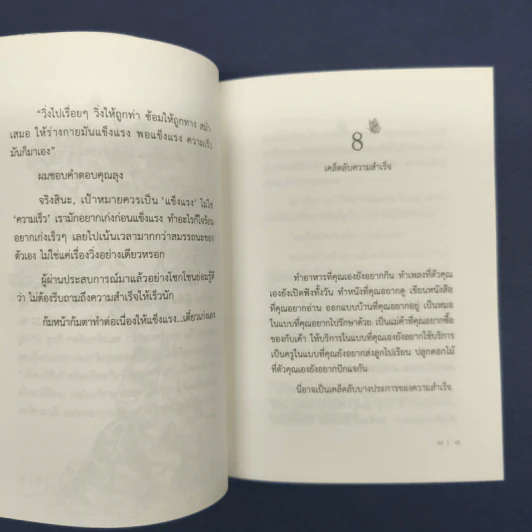 “วิ่งไปเรื่อยๆ วิ่งให้ถูกท่า ซ้อมให้ถูกทาง สม่ำ-
เสมอ ให้ร่างกายมันแข็งแรง พอแข็งแรง ความเร็ว
มันก็มาเอง”
ผมชอบคำตอบคุณลุง
จริงสินะ, เป้าหมายควรเป็น ‘แข็งแรง’ ไม่ใช่
‘ความเร็ว’ เรามักอยากเก่งก่อนแข็งแรง ทำอะไรก็ใจร้อน
อยากเก่งเร็วๆ เลยไปเน้นเวลามากกว่าสมรรถนะของ
ตัวเอง ไม่ใช่แค่เรื่องวิ่งอย่างเดียวหรอก
ผู้ผ่านประสบการณ์มาแล้วอย่างโชกโชนย่อมรู้ดี
ว่า ไม่ต้องรีบถามถึงความสำเร็จให้เร็วนัก
ก้มหน้าก้มตาทำต่อเนื่องให้แข็งแรง...เดี๋ยวเก่งเอง
8
เคล็ดลับความสำเร็จ
ทำอาหารที่คุณเองยังอยากกิน ทำเพลงที่ตัวคุณ
เองยังเปิดฟังทั้งวัน ทำหนังที่คุณอยากดู เขียนหนังสือ
ที่คุณอยากอ่าน ออกแบบบ้านที่คุณอยากอยู่ เป็นหมอ
ในแบบที่คุณอยากไปรักษาด้วย เป็นแม่ค้าที่คุณอยากซื้อ
ของกับเค้า ให้บริการในแบบที่คุณเองยังอยากใช้บริการ
เป็นครูในแบบที่คุณยังอยากส่งลูกไปเรียน ปลูกดอกไม้
ที่ตัวคุณเองยังอยากปักแจกัน
นี่อาจเป็นเคล็ดลับบางประการของความสำเร็จ